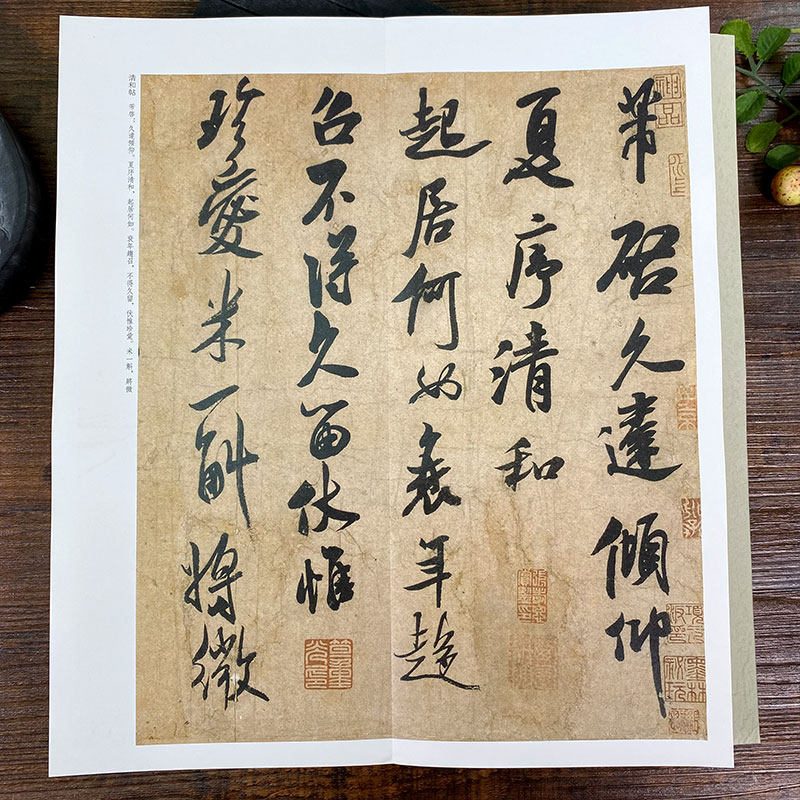 芾启久違傾仰
夏序清和
起居何如衰年趨
召不得久留伏惟
珍愛米一斛将微
清和帖 芾啓：久違傾仰。夏序清和，起居何如。衰年趨召，不得久留，伏惟珍愛。米一斛，將微
神品
墨林秘玩